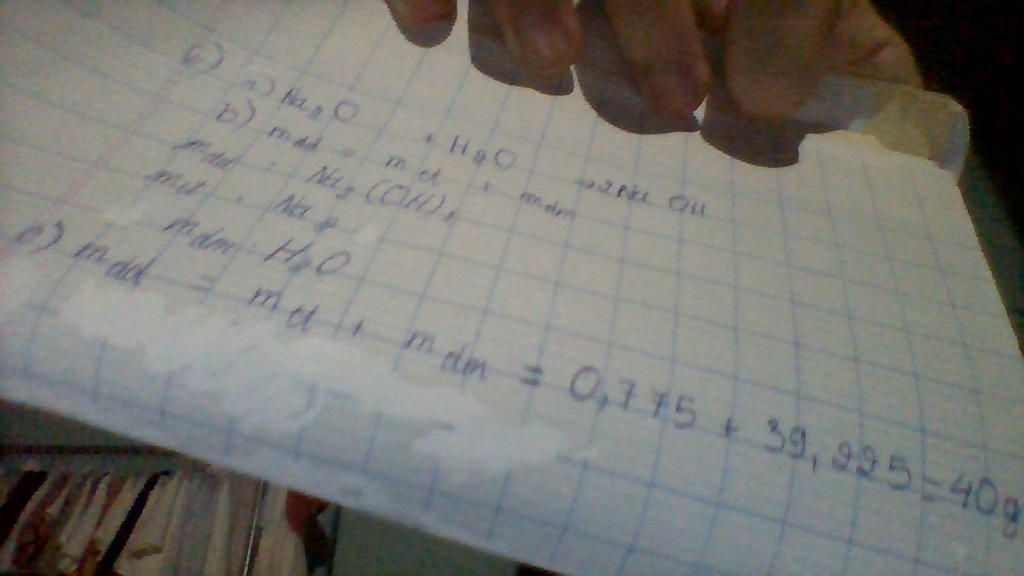 6)
a) Na2O + H2O → 2Na OH
b) mdd = mct + mdm
mdd : Na2(OH)2
mct : Na2
mdm : H2O
c) mdd = mct + mdm = 0,775 + 39,225 = 40g